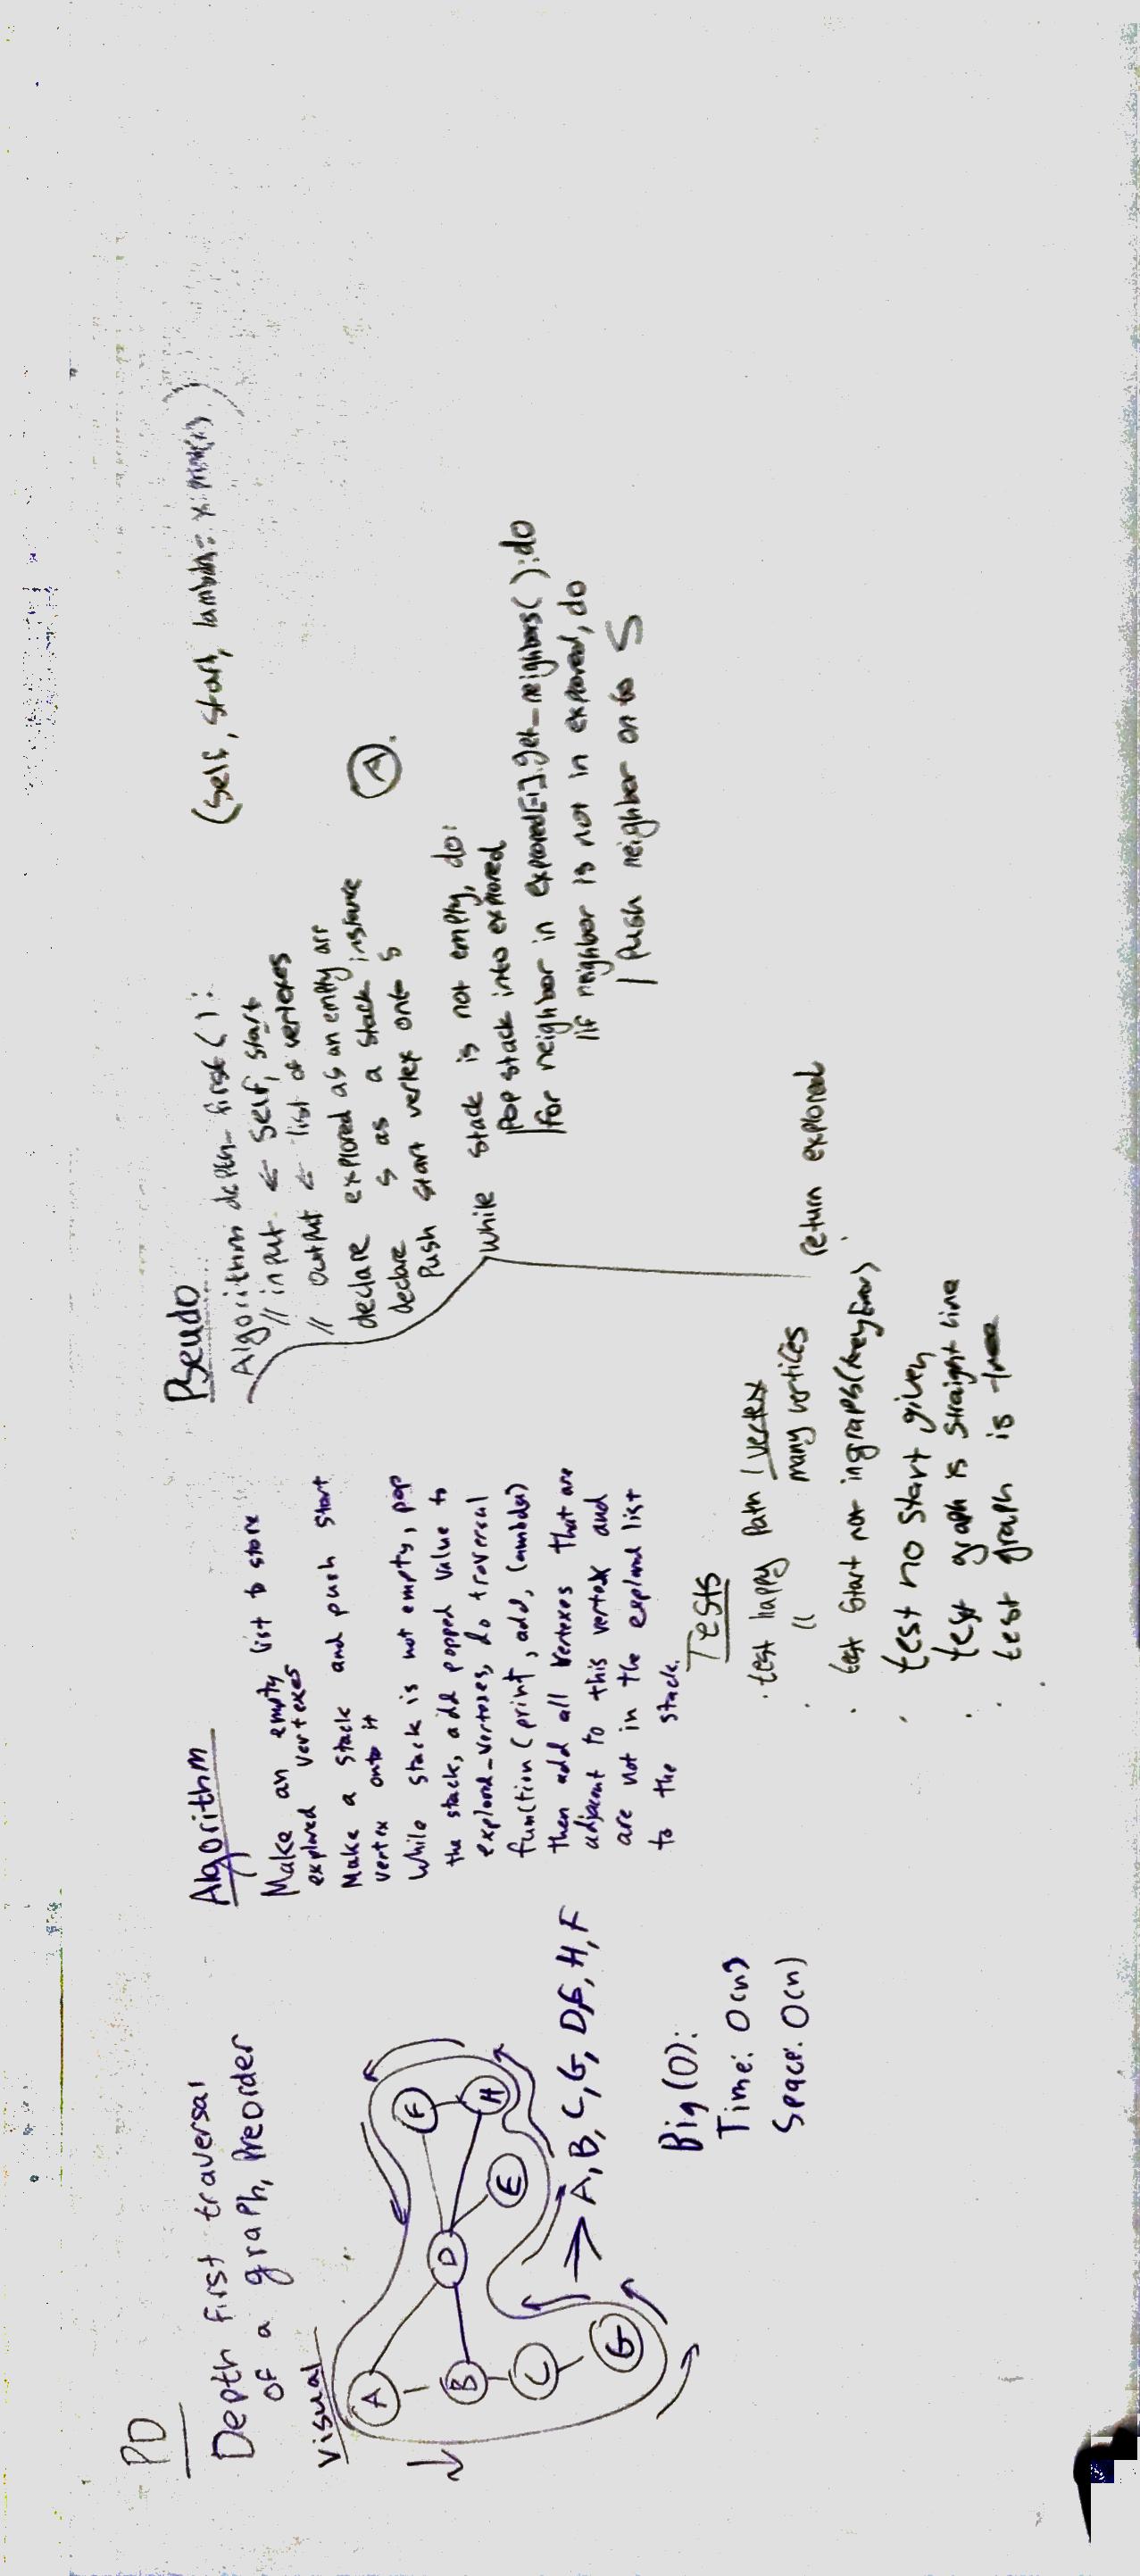 PD
Depth first traversal
of a graph, Preorder
Visual
A
B
C
G
D
E
F
H
→ A, B, C, G, D, E, H, F
Big(O):
Time: O(n)
Space: O(n)
Algorithm
Make an empty list to store
explored vertexes
Make a stack and push start
vertex onto it
While stack is not empty, pop
the stack, add popped value to
explored_vertexes, do traversal
function (print, add, lambda)
then add all vertexes that are
adjacent to this vertex and
are not in the explored list
to the stack.
Tests
· test happy path 1 vertex
· " many vertices
· test start not in graph (KeyError)
· test no start given
· test graph is straight line
· test graph is tree
Pseudo
Algorithm depth-first():
(self, start, lambda= x: print(x))
// input ← self, start
// output ← list of vertexes
declare explored as an empty arr
declare s as a stack instance
Push start vertex onto s
A
While stack is not empty, do:
Pop stack into explored
for neighbor in explored[-1].get_neighbors():do
if neighbor is not in explored, do
push neighbor onto S
return explored